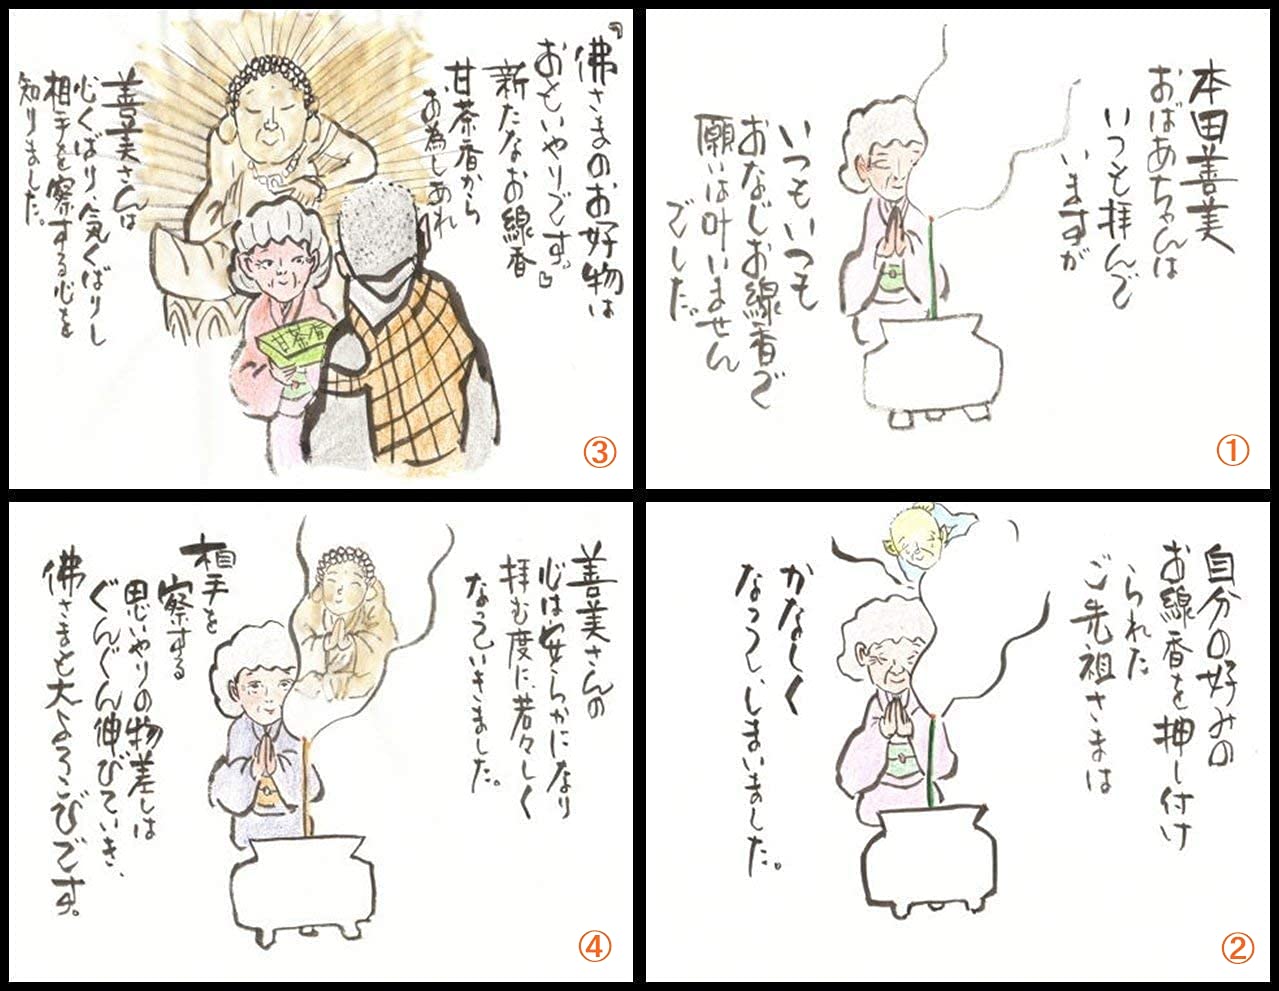 本田善美
おばあちゃんは
いつも拝んで
いますが
いつもいつも
おなじお線香で
願いは叶いません
でした。
①
自分の好みの
お線香を押し付け
られた
ご先祖さまは
かなしく
なってしまいました。
②
『佛さまのお好物は
おもいやりです。』
新たなお線香
甘茶香から
お為しあれ
甘茶香
善美さんは
心くばり気くばりし
相手を察する心を
知りました。
③
善美さんの
心は安らかになり
拝む度に、若々しく
なっていきました。
相手を
察する
思いやりの物差しは
ぐんぐん伸びていき、
佛さまも大よろこびです。
④